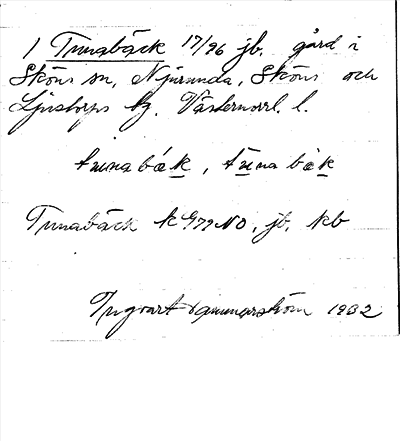 1 Tunabäck 17/96 jb. gård i
Sköns sn, Njurunda, Sköns och
Ljustorps tg. Västernorrl. l.
tunabäk, tunabäk
Tunabäck k 979 NO, jb, kb
Ingvart 1932